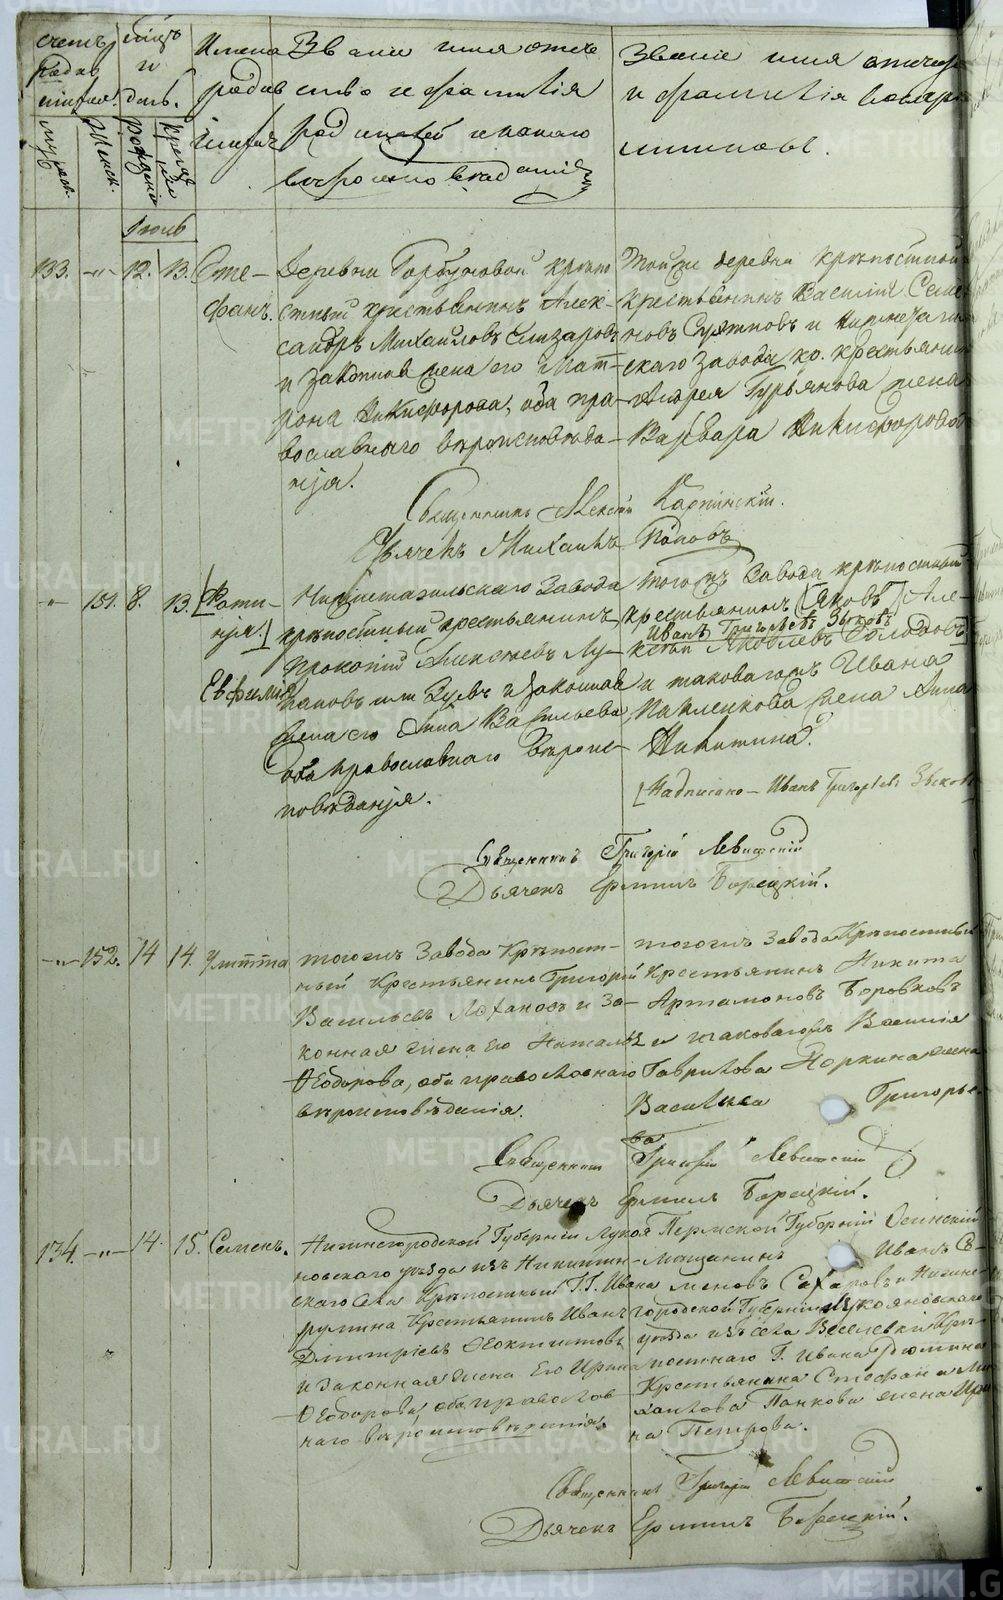 счетъ родившихся.
мужеск.
женск.
мѣсяцъ и день.
рожденія
крещенія
Имена родившихся
Званіе имя отчество и фамилія
родителей и какого
вѣроисповѣданія
Званіе имя отчество
и фамилія воспріемниковъ.
Іюль
133. -"- 12. 13. Сте-
фанъ.
Деревни Горбуновой крѣпо-
стный крестьянинъ Алек-
сандръ Михайловъ Елизаровъ
и законная жена его Мат-
рона Никифорова, оба пра-
вославнаго вѣроисповѣда-
нія.
Тойже деревни крѣпостной
крестьянинъ Василій Семе-
новъ и Нижнетагиль-
скаго завода кр. крестьянина
Андрея Гурьянова жена
Варвара Никифорова
Священникъ Алексій Карпинскій.
Дьячекъ Михаилъ Поповъ
-"- 151. 8. 13. [Фоти-
нія.]
Евфимія
Нижнетагильскаго завода
крѣпостный крестьянинъ
Прокопій Алексѣевъ Лу-
пановъ или Зуевъ и законная
жена его Анна Васильева
оба православнаго вѣроис-
повѣданія.
Того жъ завода крѣпостный
крестьянинъ [Яковъ Але-
Иванъ Григорьевъ Зыковъ
ксѣй Яковлевъ Солодовъ]
и таковагожъ Ивана
Павленкова жена Анна
Никитина.
[Надписано - Иванъ Григорьевъ Зыковъ]
Священникъ Григорій Левитскій
Дьячекъ Ермилъ Борецкій.
-"- 152. 14 14. Улитта
тогожъ завода крѣпост-
ный крестьянинъ Григорій
Васильевъ Лохановъ и за-
конная жена его Наталья
Ѳеодорова, оба православнаго
вѣроисповѣданія.
тогожъ завода крѣпостный
крестьянинъ Никита
Артамоновъ Боровковъ
и таковагожъ Василія
Гаврилова Норкина жена
Василиса Григорье-
ва
Священникъ Григорій Левитскій
Дьячекъ Ермилъ Борецкій.
134. -"- 14. 15. Семенъ.
Нижегородской Губерніи Лукоя-
новскаго уѣзда изъ Никитин-
скаго села крѣпостный Г.Г. Ивана
крестьянинъ Иванъ
Дмитріевъ Ѳеоктистовъ
и законная жена его Ирина
Ѳеодорова, оба православ
наго вѣроисповѣданія.
Пермской Губерніи Осинскій
мѣщанинъ Иванъ Се-
меновъ Сахаровъ и Ниже-
городской Губерніи Лукояновскаго
уѣзда изъ села Веселевки крѣ-
постнаго Г. Ивана
крестьянина Стефана Ми-
хайлова Панкова жена Ири-
на Петрова.
Священникъ Григорій Левитскій
Дьячекъ Ермилъ Борецкій.
METRIKI.GASO-URAL.RU